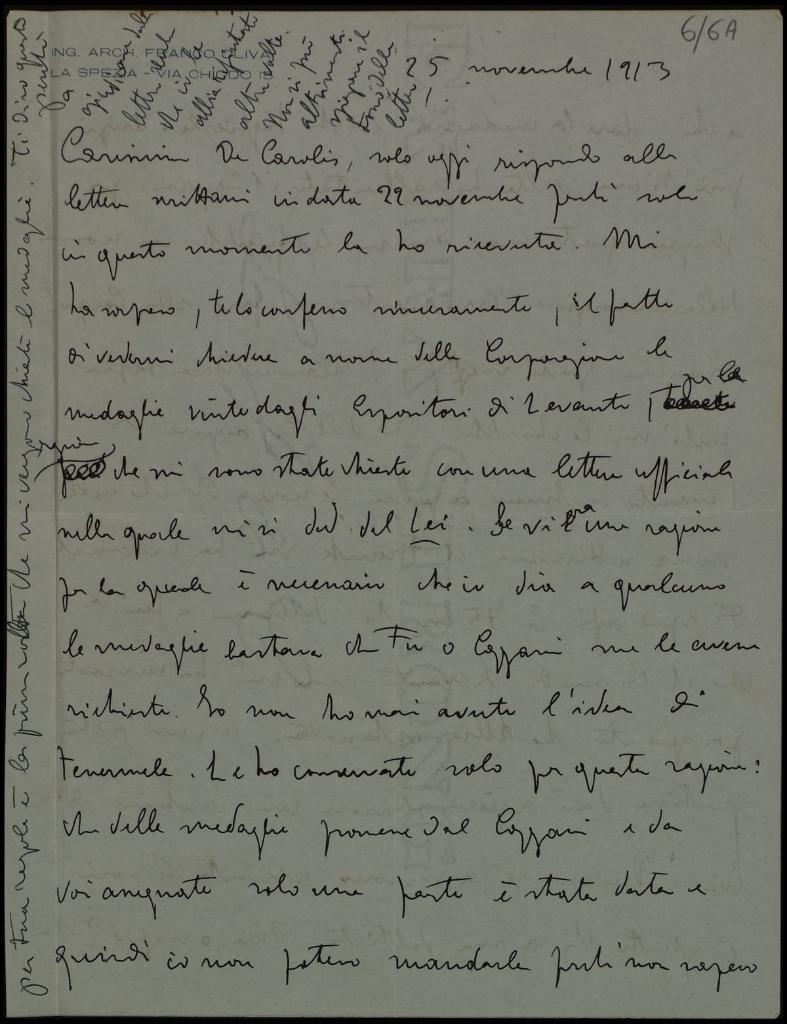 6/6A
ING. ARCH. FRANCO OLIVA
LA SPEZIA - VIA CHIODO
25 novembre 1913
Carissimo De Carolis, solo oggi rispondo alla
lettera scrittami in data 22 novembre perchè solo
in questo momento la ho ricevuta. Mi
ha sorpreso, te lo confesso sinceramente, il fatto
di vedermi chiedere a nome della Corporazione le
medaglie vinte dagli Espositori di Levante, per la
ragione che mi sono state chieste con una lettera ufficiale
nella quale mi si dà del Lei. Se vi era una ragione
per la quale è necessario che io dia a qualcuno
le medaglie bastava che Tu o Cozzani me le avesse
richieste. Io non ho mai avuto l'idea di
tenermele. Le ho conservate solo per questa ragione:
che delle medaglie promesse dal Cozzani e da
voi assegnate solo una parte è stata data e
quindi io non potevo mandarle perchè non sapevo
per tua regola è la prima volta che mi vengono chieste le medaglie. Ti dico questo
perchè
Da
della
lettera
che ci
abbia
altre volte.
Non si può
altrimenti
spiegare il
tono della
lettera!